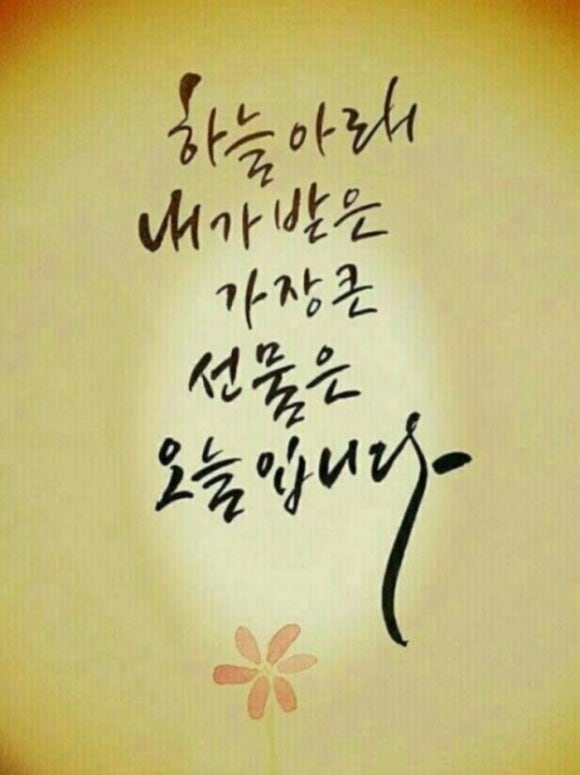 하늘 아래
내가 받은
가장 큰
선물은
오늘입니다